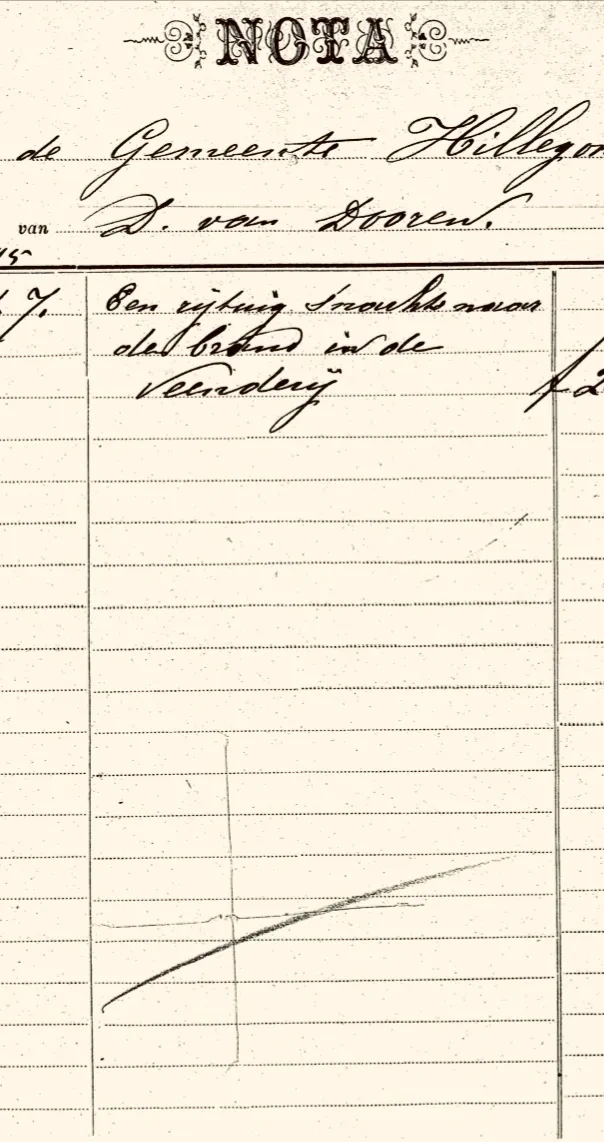 NOTA
de Gemeente Hillegom
van D. van Dooren.
7. Een rijtuig s'nachts naar
de brand in de
Veenderij f 2